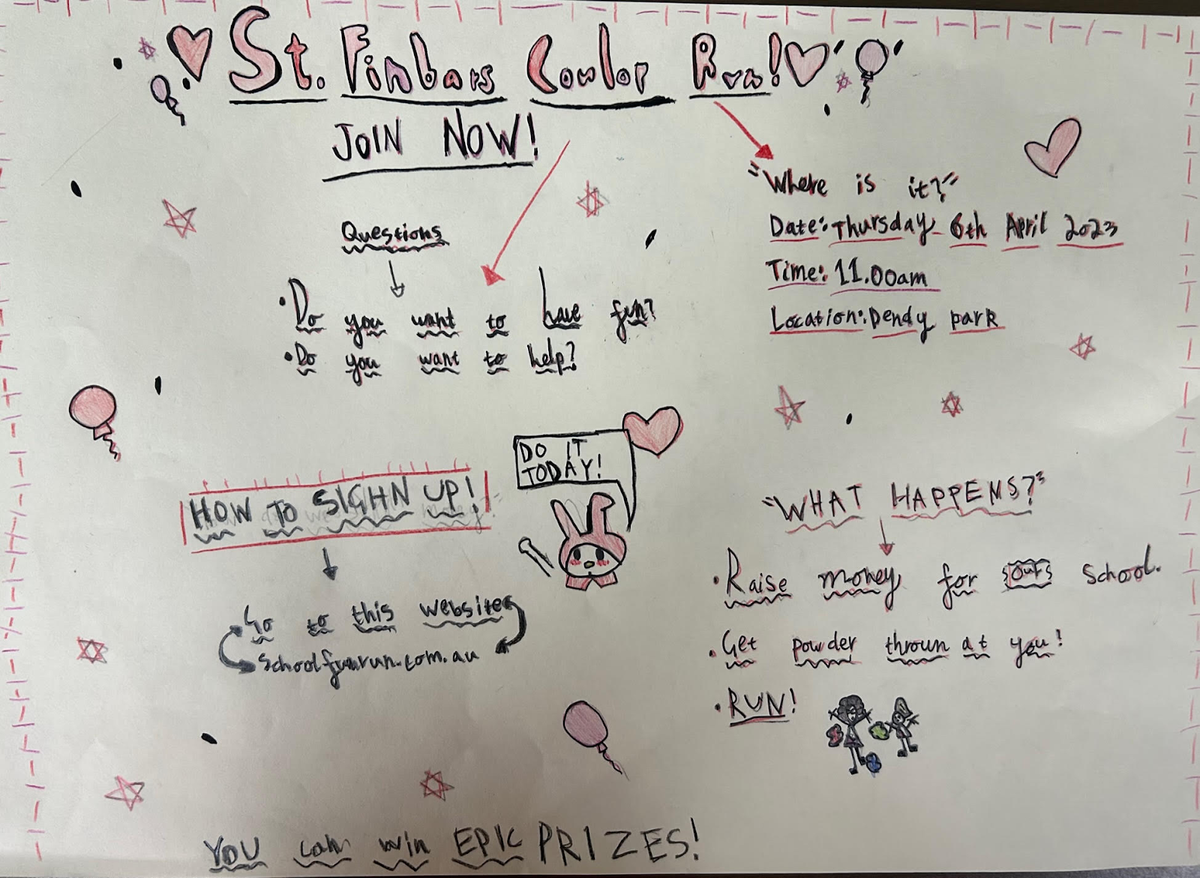 St. Finbars Coulor Run!
JOIN NOW!
Questions
• Do you want to have fun?
• Do you want to help?
"Where is it?"
Date: Thursday 6th April 2023
Time: 11.00am
Location: Dendy park
DO IT
TODAY!
HOW TO SIGHN UP!
Go to this website
schoolfunrun.com.au
"WHAT HAPPENS?"
• Raise money for our school.
• Get powder thrown at you!
• RUN!
YOU can win EPIC PRIZES!